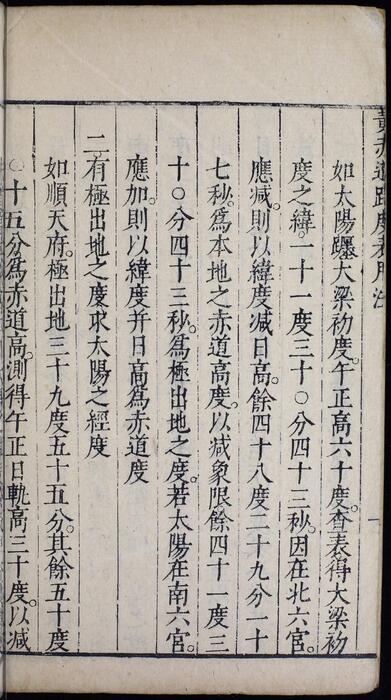 黃赤道距度表用法
如太陽躔大梁初度。午正高六十度。查表得大梁初
度之緯。一十一度三十〇分四十三秒。因在北六宮。
應減。則以緯度減日高。餘四十八度二十九分一十
七秒。爲本地之赤道高度。以減象限。餘四十一度三
十〇分四十三秒。爲極出地之度。若太陽在南六宮。
應加。則以緯度并日高爲赤道度
二有極出地之度求太陽之經度
如順天府。極出地三十九度五十五分。其餘五十度
〇十五分爲赤道高。測得午正日軌高三十度。以減